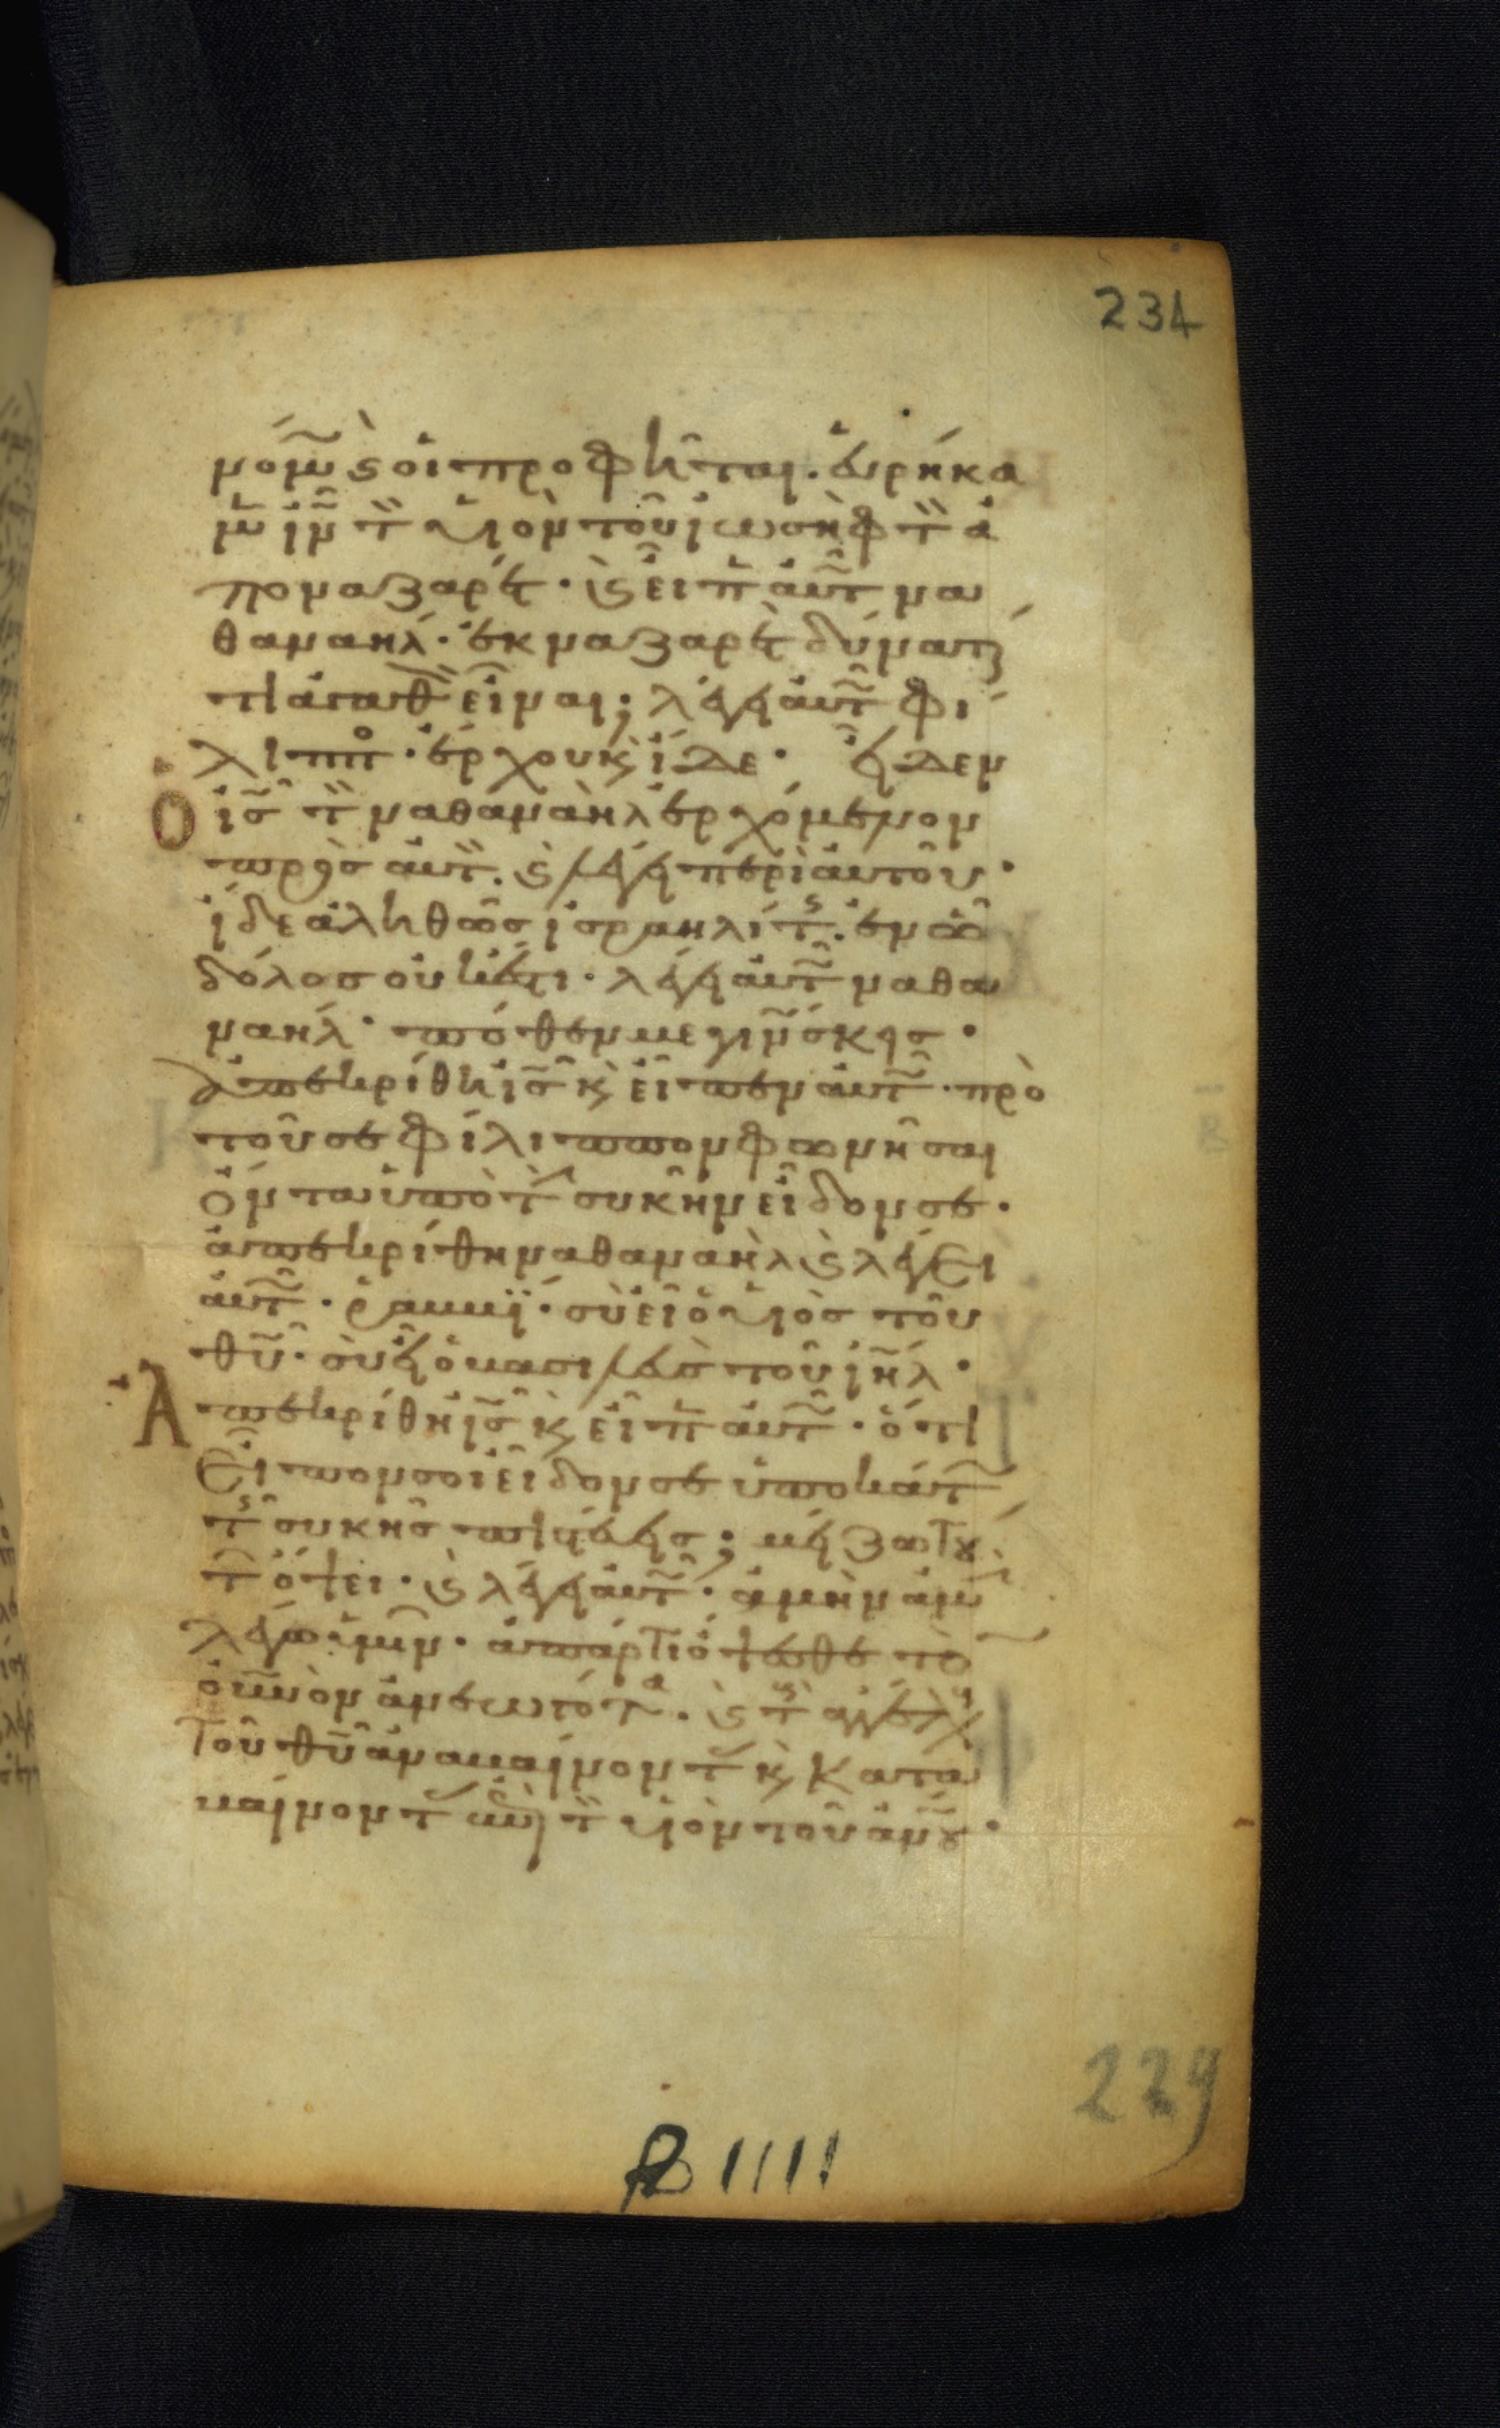 234
νόμω ϛ οἱ προφῆται. εὑρήκα
μεν ιν τὸν υἱὸν τοῦ ἰωσὴφ τὸν ἀ
πο ναζαρέτ · ϛ εἶπεν αὐτῶ να
θαναήλ · ἐκ ναζαρὲτ δύναταί
τι ἀγαθὸν εἶναι; λέγει αὐτῶ φί
λιππος · ἔρχου κ ἴδε · εἶδεν
Ο ις τὸν ναθαναὴλ ἐρχόμενον
πρὸς αὐτὸν. ϛ λέγει περὶ αὐτοῦ ·
ἴδε ἀληθῶς ἰσραηλίτης. ἐν ὧ
δόλος οὐκ ἔστι · λέγει αὐτῶ ναθα
ναήλ · πόθεν με γινώσκεις ·
ἀπεκρίθη ις κ εἶπεν αὐτῶ · πρὸ
τοῦ σε φίλιππον φωνῆσαι
ὄντα ὑπὸ τὴν συκῆν εἶδον σε ·
ἀπεκρίθη ναθαναὴλ ϛ λέγει
αὐτῶ · ῥαββί · σὺ εἶ ὁ υἱὸς τοῦ
θυ · σὺ εἶ ὁ βασιλεὺς τοῦ ιηλ ·
Ἀπεκρίθη ις κ εἶπεν αὐτῶ · ὅτι
εἶπον σοι εἶδον σε ὑποκάτω
τῆς συκῆς πιστεύεις; μείζω τού
των ὄψει · ϛ λέγει αὐτῶ · ἀμὴν ἀμὴν
λέγω ὑμῖν · ἀπάρτι ὄψεσθε τὸν
οὐνὸν ἀνεωγότα · ϛ τοὺς ἀγγέλους
τοῦ θυ ἀναβαίνοντας κ κατα
βαίνοντας ἐπὶ τὸν υἱὸν τοῦ ἀνου ·
229